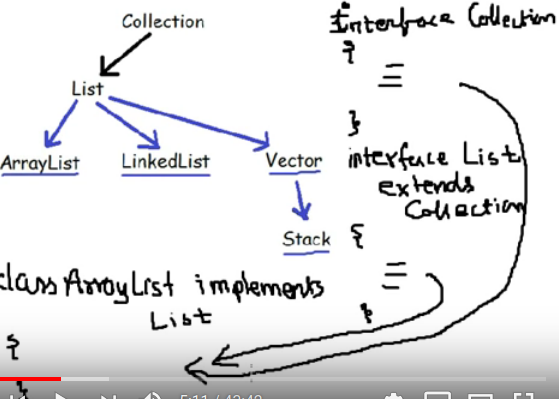 Collection
List
ArrayList LinkedList Vector
Stack
Interface Collection
{
}
interface List
extends
Collection
{
}
class ArrayList implements
List
{
}